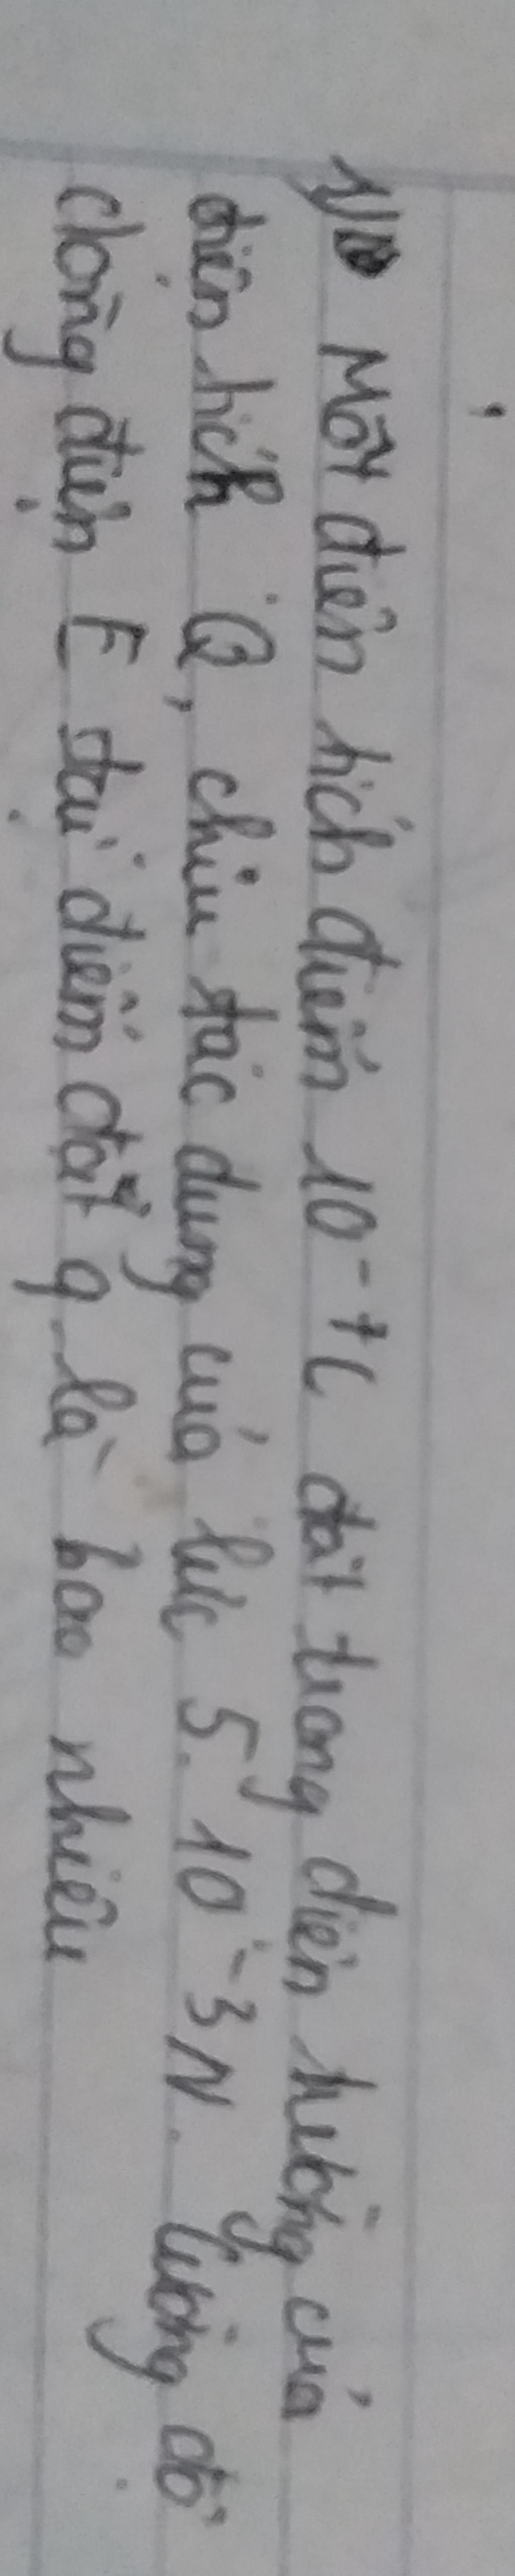 1/ Một điện tích điểm 10⁻⁷C đặt trong điện trường của
điện tích Q, chịu tác dụng của lực 5.10⁻³N. Cường độ
dòng điện E tại điểm đặt q là bao nhiêu